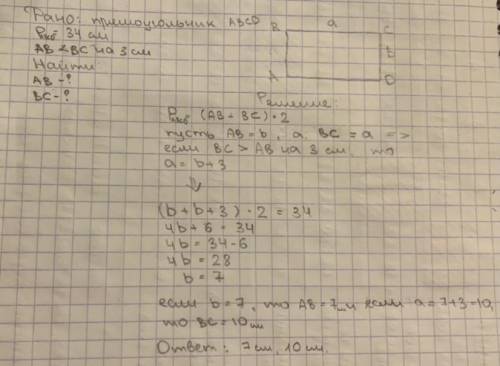 Дано: прямоугольник ABCD
P 34 см
AB < BC на 3 см
Найти:
AB - ?
BC - ?
B a C
b
A D
Решение:
P (AB + BC) · 2
пусть AB = b, а BC = a =>
если BC > AB на 3 см, то
a = b + 3
(b + b + 3) · 2 = 34
4b + 6 = 34
4b = 34 - 6
4b = 28
b = 7
если b = 7, то AB = 7 и если a = 7 + 3 = 10,
то BC = 10
Ответ: 7 см, 10 см.